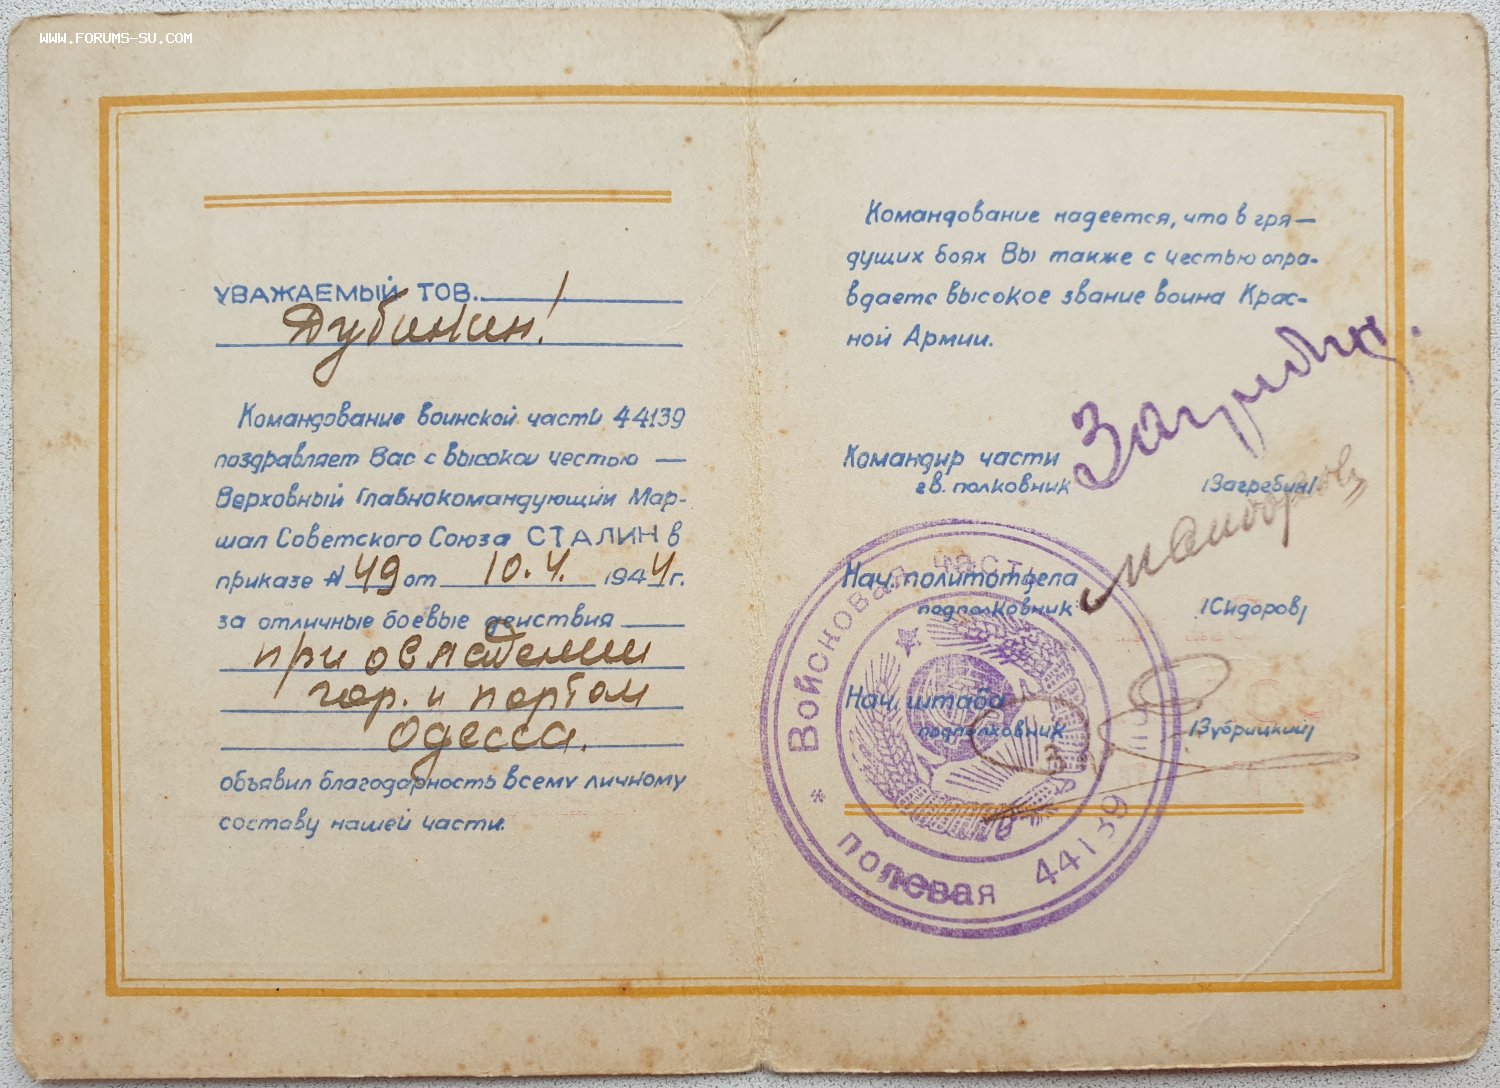 WWW.FORUMS-SU.COM
УВАЖАЕМЫЙ ТОВ. !
Дубинкин!
Командование воинской части 44139
поздравляет Вас с высокой честью —
Верховный Главнокомандующий Мар-
шал Советского Союза СТАЛИН в
приказе № 49 от 10.4. 1944 г.
за отличные боевые действия
при овладении
гор. и портом
Одесса.
объявил благодарность всему личному
составу нашей части.
Командование надеется, что в гря-
дущих боях Вы также с честью опра-
вдаете высокое звание воина Крас-
ной Армии.
Командир части
гв. полковник /Загребин/
Нач. политотдела
подполковник /Сидоров/
Нач. штаба
подполковник /Зубрицкий/
Войсковая часть
полевая 44139